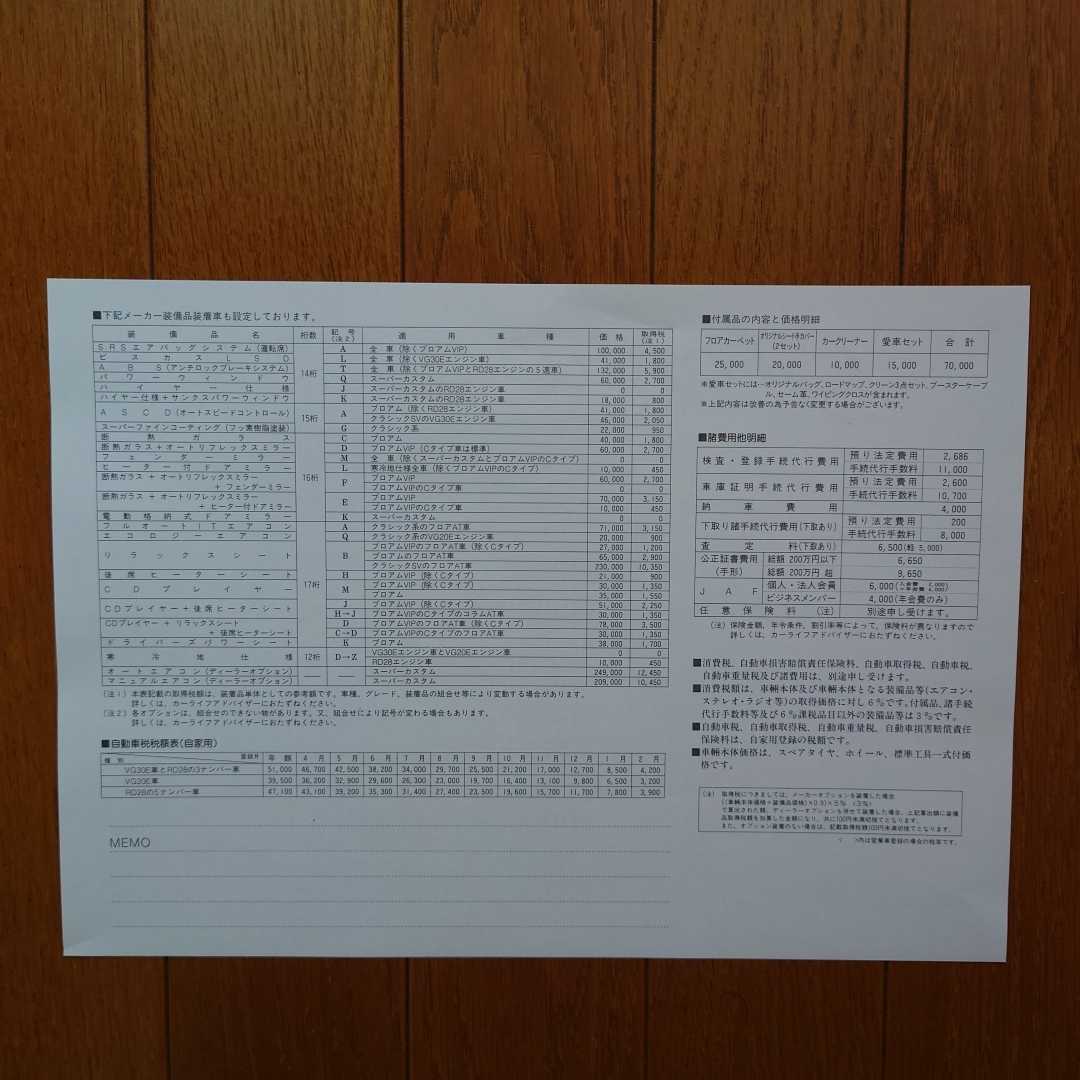 ■下記メーカー装備品装着車も設定しております。
装備品名 桁数 記号(注2) 適用車種 価格 取得税(注1)
SRSエアバッグシステム(運転席) 14桁 A 全車(除くブロアムVIP) 100,000 4,500
ビスカスLSD L 全車(除くVG30Eエンジン車) 41,000 1,800
ABS(アンチロックブレーキシステム) T 全車(除くブロアムVIPとRD28エンジンの5速車) 132,000 5,900
パワーウィンドウ Q スーパーカスタム 60,000 2,700
ハイヤー仕様 J スーパーカスタムのRD28エンジン車 0 0
ハイヤー仕様+サンクスパワーウィンドウ K スーパーカスタムのRD28エンジン車 18,000 800
ASCD(オートスピードコントロール) 15桁 A ブロアム(除くRD28エンジン車) 41,000 1,800
クラシックSVのVG30Eエンジン車 46,000 2,050
スーパーファインコーティング(フッ素樹脂塗装) G クラシック系 22,000 950
断熱ガラス 16桁 C ブロアム 40,000 1,800
断熱ガラス+オートリフレックスミラー D ブロアムVIP(Cタイプ車は標準) 60,000 2,700
フェンダーミラー M 全車(除くスーパーカスタムとブロアムVIPのCタイプ) 0 0
ヒーター付ドアミラー L 寒冷地仕様全車(除くブロアムVIPのCタイプ) 10,000 450
断熱ガラス+オートリフレックスミラー F ブロアムVIP 60,000 2,700
+フェンダーミラー ブロアムVIPのCタイプ車 0 0
断熱ガラス+オートリフレックスミラー E ブロアムVIP 70,000 3,150
+ヒーター付ドアミラー ブロアムVIPのCタイプ車 10,000 450
電動格納式ドアミラー K スーパーカスタム 0 0
フルオートITエアコン 17桁 A クラシック系のフロアAT車 71,000 3,150
エコロジーエアコン Q クラシック系のVG20Eエンジン車 20,000 900
リラックスシート B ブロアムVIPのフロアAT車(除くCタイプ) 27,000 1,200
ブロアムのフロアAT車 65,000 2,900
クラシックSVのフロアAT車 230,000 10,350
後席ヒーターシート H ブロアムVIP(除くCタイプ) 21,000 900
CDプレイヤー M ブロアムVIP(除くCタイプ) 30,000 1,350
ブロアム 35,000 1,550
CDプレイヤー+後席ヒーターシート J ブロアムVIP(除くCタイプ) 51,000 2,250
H→J ブロアムVIPのCタイプのコラムAT車 30,000 1,350
CDプレイヤー+リラックスシート D ブロアムVIPのフロアAT車(除くCタイプ) 78,000 3,500
+後席ヒーターシート C→D ブロアムVIPのCタイプのフロアAT車 30,000 1,350
ドライバーズパワーシート K ブロアム 38,000 1,700
寒冷地仕様 12桁 D→Z VG30Eエンジン車とVG20Eエンジン車 0 0
RD28エンジン車 10,000 450
オートエアコン(ディーラーオプション) — — スーパーカスタム 249,000 12,450
マニュアルエアコン(ディーラーオプション) スーパーカスタム 209,000 10,450
(注1)本表記載の取得税額は、装着品単体としての参考額です。車種、グレード、装着品の組合せ等により変動する場合があります。
詳しくは、カーライフアドバイザーにおたずねください。
(注2)各オプションは、組合せのできない物があります。又、組合せにより記号が変わる場合もあります。
詳しくは、カーライフアドバイザーにおたずねください。
■自動車税税額表(自家用)
種別 登録月 年額 4月 5月 6月 7月 8月 9月 10月 11月 12月 1月 2月
VG30E車とRD28の3ナンバー車 51,000 46,700 42,500 38,200 34,000 29,700 25,500 21,200 17,000 12,700 8,500 4,200
VG20E車 39,500 36,200 32,900 29,600 26,300 23,000 19,700 16,400 13,100 9,800 6,500 3,200
RD28の5ナンバー車 47,100 43,100 39,200 35,300 31,400 27,400 23,500 19,600 15,700 11,700 7,800 3,900
MEMO
■付属品の内容と価格明細
フロアカーペット オリジナルシートカバー(2セット) カークリーナー 愛車セット 合計
25,000 20,000 10,000 15,000 70,000
※愛車セットには…オリジナルバッグ、ロードマップ、クリーン3点セット、ブースターケーブ
ル、セーム革、ワイピングクロスが含まれます。
※上記内容は改善の為予告なく変更する場合がございます。
■諸費用他明細
検査・登録手続代行費用 預り法定費用 2,686
手続代行手数料 11,000
車庫証明手続代行費用 預り法定費用 2,600
手続代行手数料 10,700
納車費用 4,000
下取り諸手続代行費用(下取あり) 預り法定費用 200
手続代行手数料 8,000
査定料(下取あり) 6,500(軽 5,000)
公正証書費用 総額200万円以下 6,650
(手形) 総額200万円超 9,650
JAF 個人・法人会員 6,000(入会費 2,000 年会費 4,000)
ビジネスメンバー 4,000(年会費のみ)
任意保険料(注) 別途申し受けます。
(注)保険金額、年令条件、割引率等によって、保険料が異なりますので
詳しくは、カーライフアドバイザーにおたずねください。
■消費税、自動車損害賠償責任保険料、自動車取得税、自動車税、
自動車重量税及び諸費用は、別途申し受けます。
■消費税額は、車輛本体及び車輛本体となる装備品等(エアコン・
ステレオ・ラジオ等)の取得価格に対し6%です。付属品、諸手続
代行手数料等及び6%課税品目以外の装備品等は3%です。
■自動車税、自動車取得税、自動車重量税、自動車損害賠償責任
保険料は、自家用登録の税額です。
■車輛本体価格は、スペアタイヤ、ホイール、標準工具一式付価
格です。
(注) 取得税につきましては、メーカーオプションを装着した場合、
{(車輛本体価格+装備品価格)×0.9}×5% 〈3%〉
で算出された額、ディーラーオプションも併せて装着した場合、上記算出額に装備
品取得税額を加算した金額になり、共に100円未満切捨てとなります。
また、オプション装着のない場合は、記載取得税額100円未満切捨てとなります。
〈 〉内は営業車登録の場合の税率です。